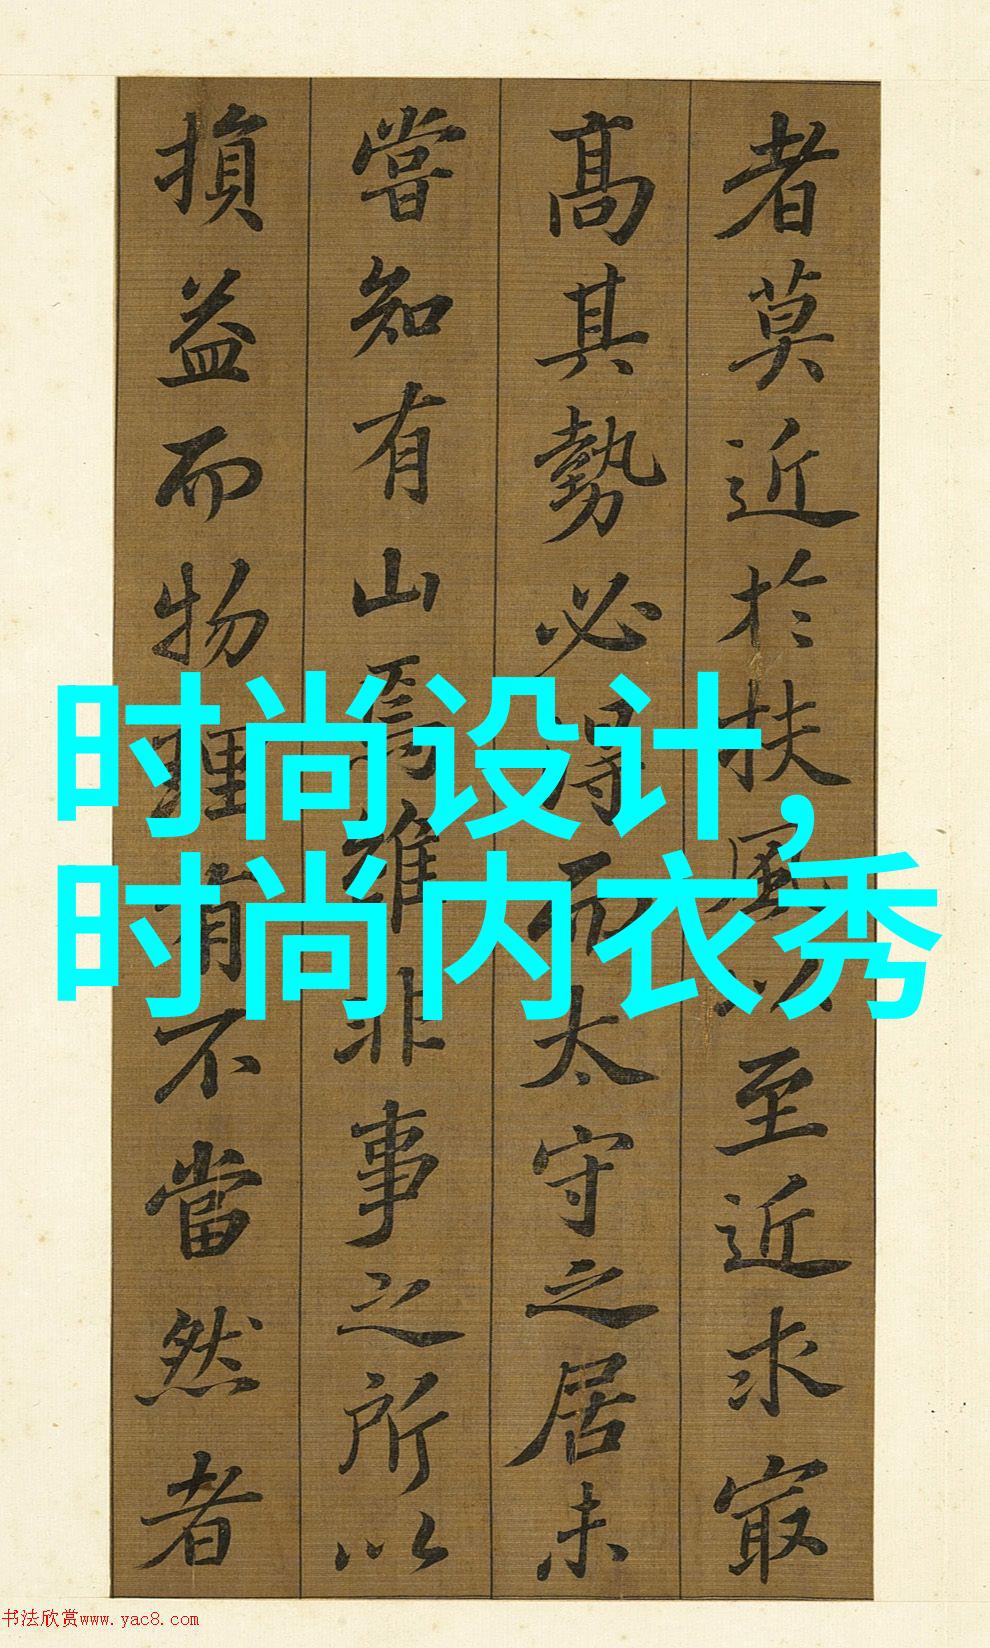 者莫近於扶風以至近求㝡
高其勢必得而太守之居未
嘗知有山焉雖非事之所以
損益而物理有不當然者
时尚设计,
时尚内衣秀
书法欣赏www.yac8.com